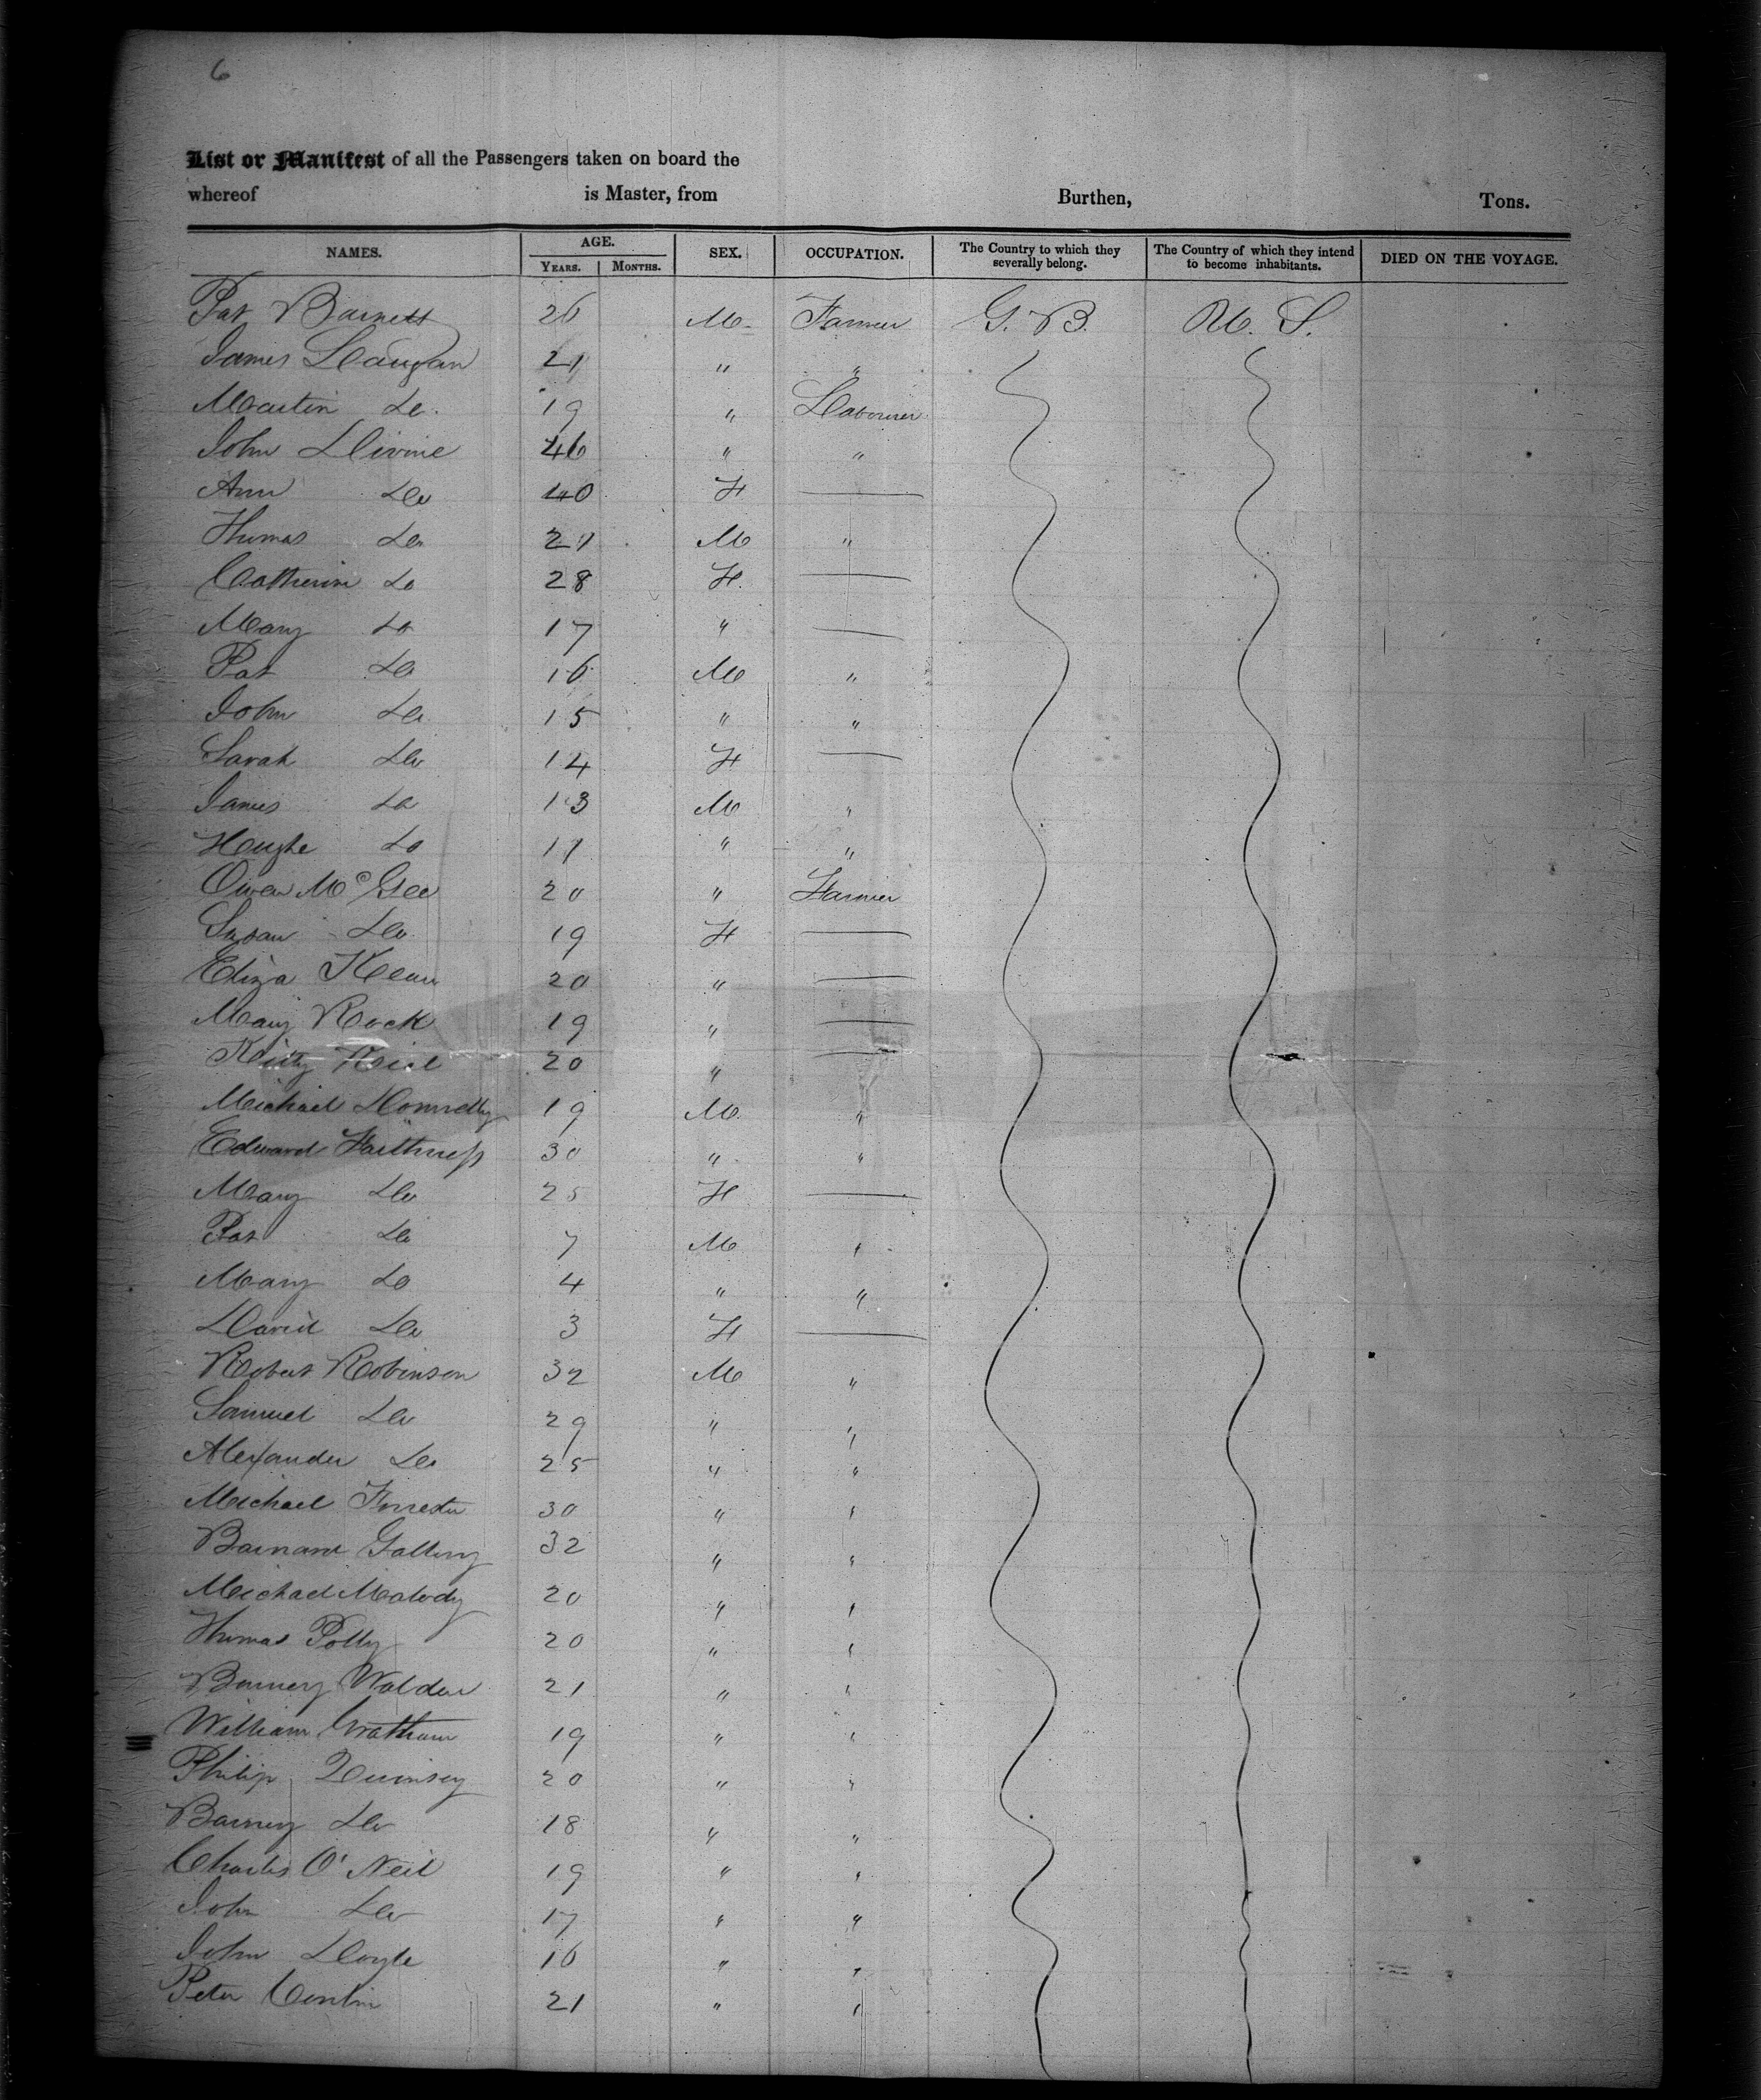 6
List or Manifest of all the Passengers taken on board the
whereof is Master, from Burthen, Tons.
NAMES. AGE. SEX. OCCUPATION. The Country to which they severally belong. The Country of which they intend to become inhabitants. DIED ON THE VOYAGE.
YEARS. MONTHS.
Pat Barnett 26 M. Farmer G. B. U. S.
James Laugan 21 " "
Martin Do. 19 " Labourer
John Divine 46 " "
Ann Do 40 F
Thomas Do 21 M "
Catherine Do 28 F.
Mary Do 17 "
Pat Do 16 M "
John Do 15 " "
Sarah Do 14 F
James Do 13 M "
Hughe Do 11 " "
Owen McGee 20 " Farmer
Susan Do 19 F
Eliza Kean 20 "
Mary Rock 19 "
Kitty 20 "
Michael Donnelly 19 M. "
Edward 30 " "
Mary Do 25 F
Pat Do 7 M "
Mary Do 4 " "
David Do 3 F
Robert Robinson 32 M "
Samuel Do 29 " "
Alexander Do 25 " "
Michael Forrester 30 " "
Barnard 32 " "
Michael Malody 20 " "
Thomas Polly 20 " "
Barney Walden 21 " "
William 19 " "
Philip Quinsey 20 " "
Barney Do 18 " "
Charles O'Neil 19 " "
John Do 17 " "
John Doyle 16 " "
Peter Conlin 21 " "